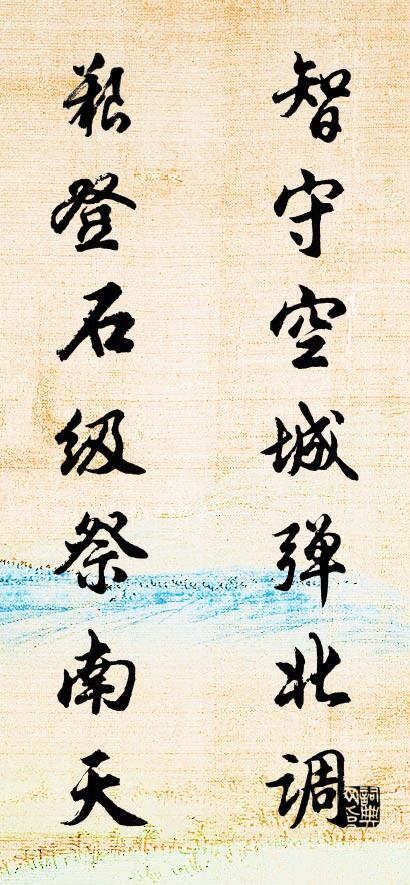 智守空城弹北调
艰登石级祭南天